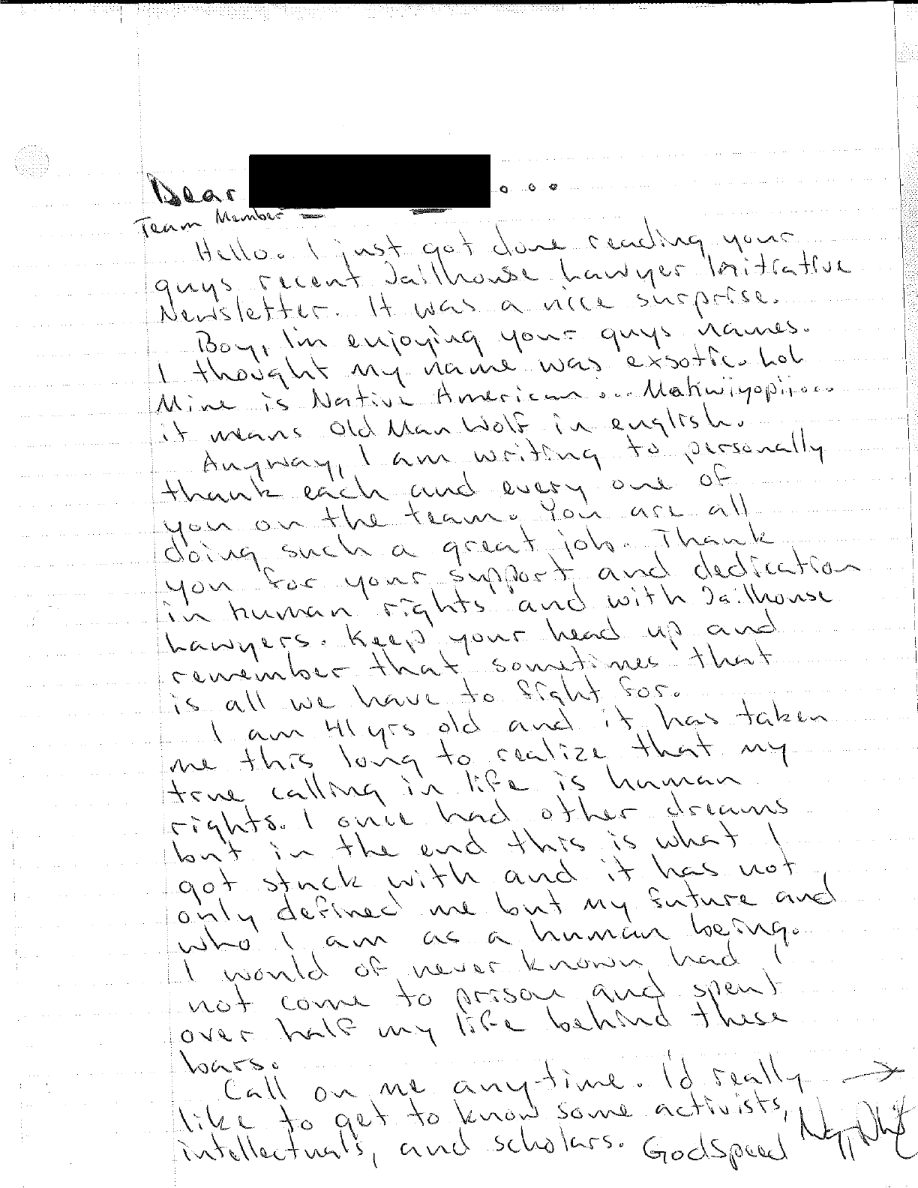 Dear ...
Team Member
Hello. I just got done reading your
guys recent Jailhouse Lawyer Initiative
Newsletter. It was a nice surprise.
Boy, I'm enjoying your guys names.
I thought my name was exsotic. Lol
Mine is Native American... Makwiyopii...
it means Old Man Wolf in english.
Anyway, I am writing to personally
thank each and every one of
you on the team. You are all
doing such a great job. Thank
you for your support and dedication
in human rights and with Jailhouse
Lawyers. Keep your head up and
remember that sometimes that
is all we have to fight for.
I am 41 yrs old and it has taken
me this long to realize that my
true calling in life is human
rights. I once had other dreams
but in the end this is what I
got stuck with and it has not
only defined me but my future and
who I am as a human being.
I would of never known had I
not come to prison and spent
over half my life behind these
bars.
Call on me any-time. I'd really →
like to get to know some activists,
intellectuals, and scholars. GodSpeed